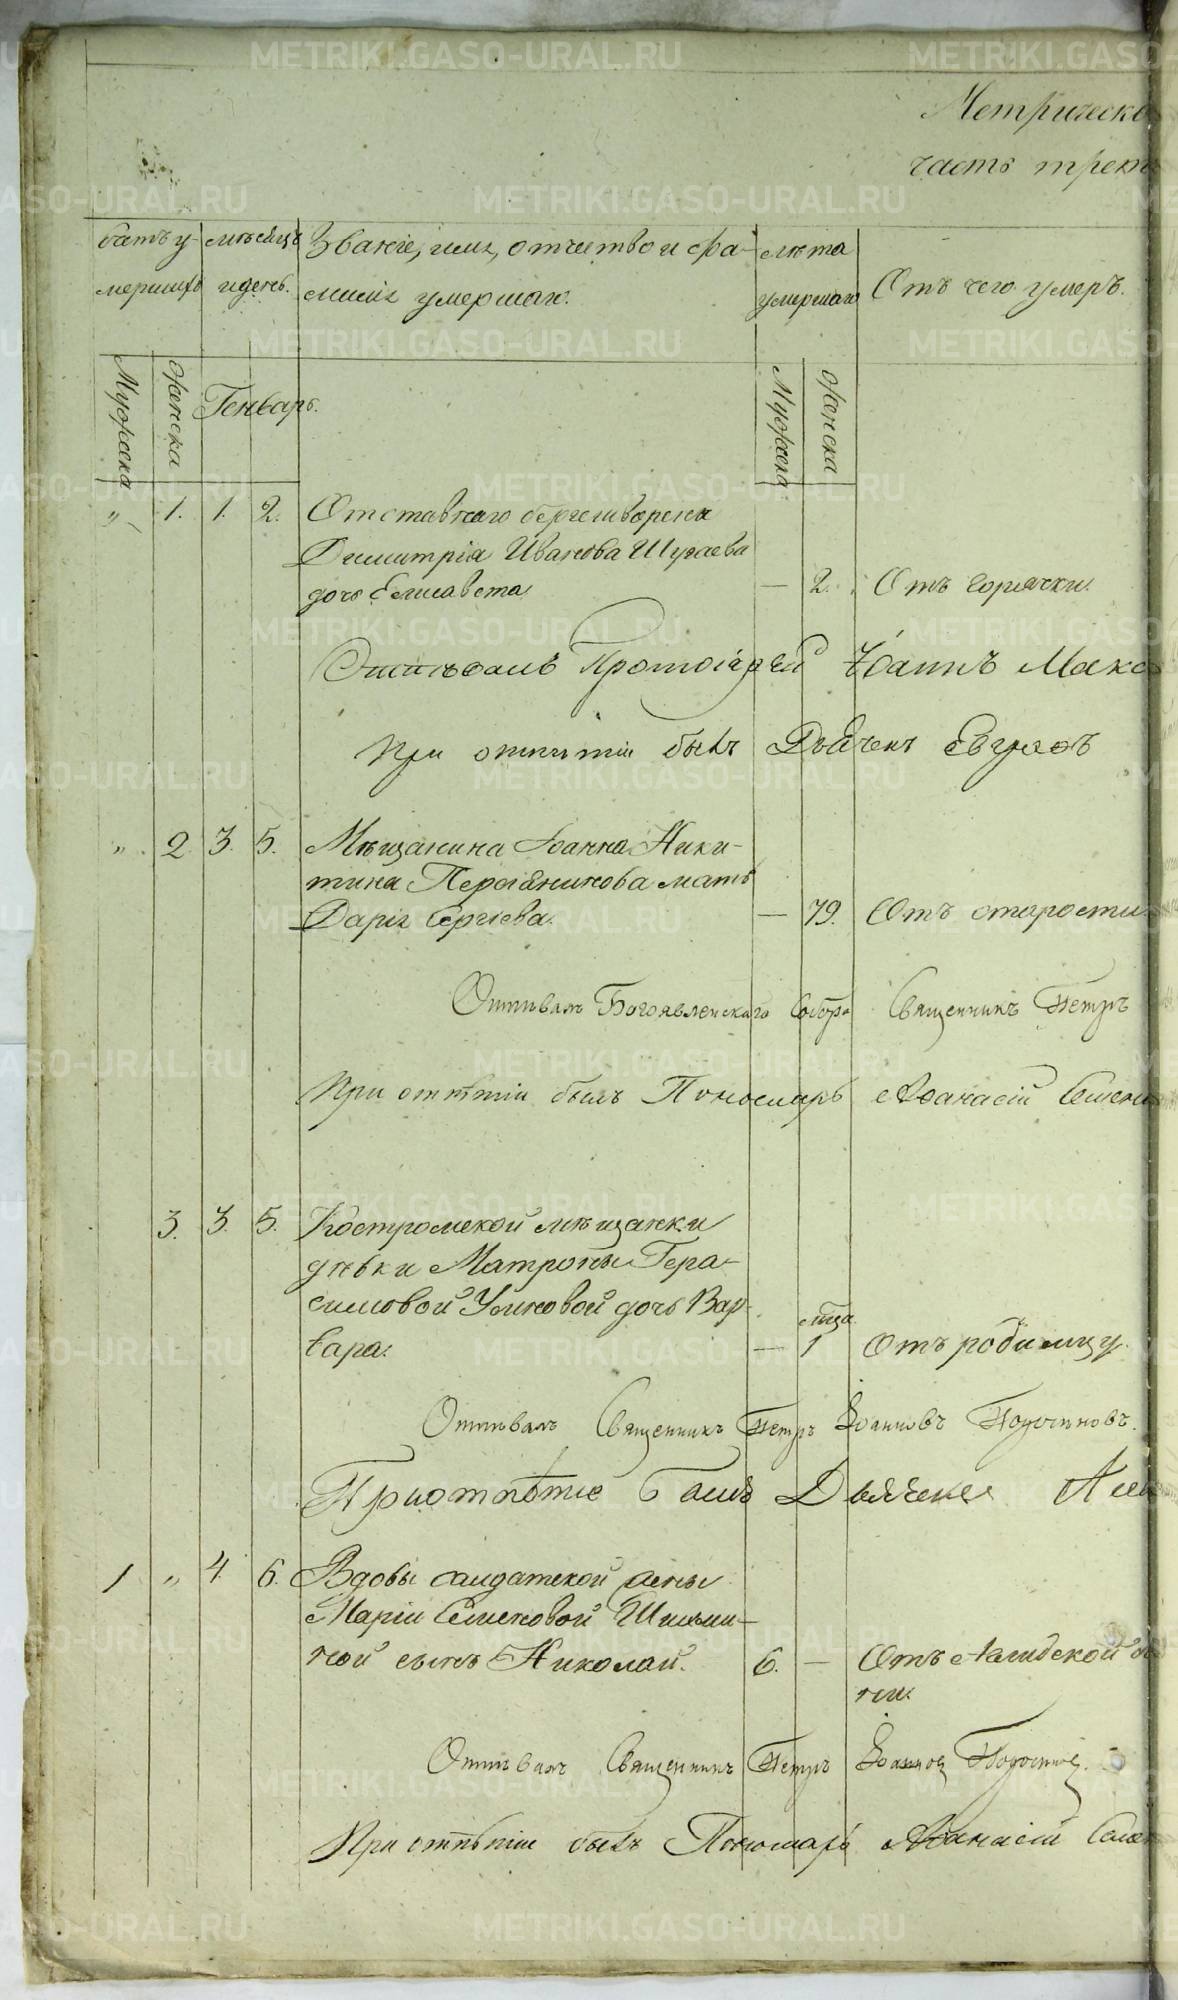 METRIKI.GASO-URAL.RU
Метрическо
часть трет
умершихъ
мѣсяцъ и день.
Званіе, имя, отчество и фа-
милія умершаго.
лѣта умершаго
Отъ чего умеръ.
Мужеска
женска
Генварь.
Мужеска
женска
„ 1. 1. 2. Отставнаго бергешворена
Димитрія Иванова Шугаева
дочь Елисавета — 2. Отъ горячки.
Отпѣвалъ Протоіерей Іоаннъ Макс
При отпѣтіи былъ Дьячекъ
„ 2 3. 5. Мѣщанина Іоанна Ники-
тина мать
Дарія Сергіева. — 79. Отъ старости.
Отпѣвалъ Богоявленскаго Собора Священникъ Петръ
При отпѣтіи былъ Пономарь Аѳанасій
3. 3. 5. Костромской мѣщанки
дѣвки Матроны Гера-
симовой дочь Вар-
вара. — мца 1 Отъ родимцу.
Отпѣвалъ Священникъ Петръ Іоанновъ
При отпѣтіе Дьячекъ
1 „ 4. 6. Вдовы салдатской жены
Маріи Семеновой
ной сынъ Николай. 6. — Отъ
Отпѣвалъ Священникъ Петръ
При отпѣтіи былъ Пономарь Аѳанасій